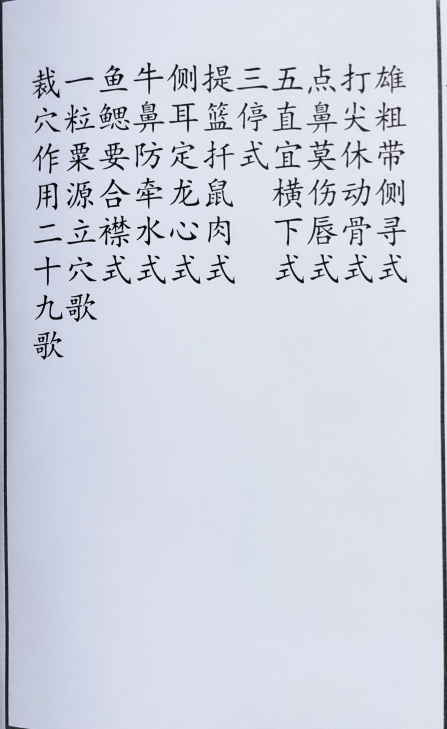 雄粗带侧寻式
打尖休动骨式
点鼻莫伤唇式
五直宜横下式
三停式
提篮扦鼠肉式
侧耳定龙心式
牛鼻防牵水式
鱼鳃要合襟式
一粒粟源立穴歌
裁穴作用二十九歌